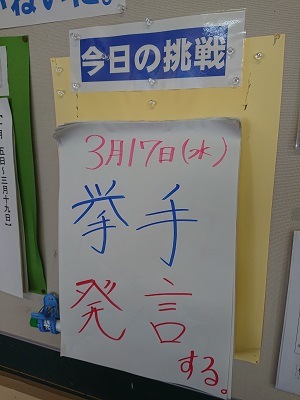 ないた。
今日の挑戦
3月17日(水)
挙手
発言
する。
月 五日～三月十九日】